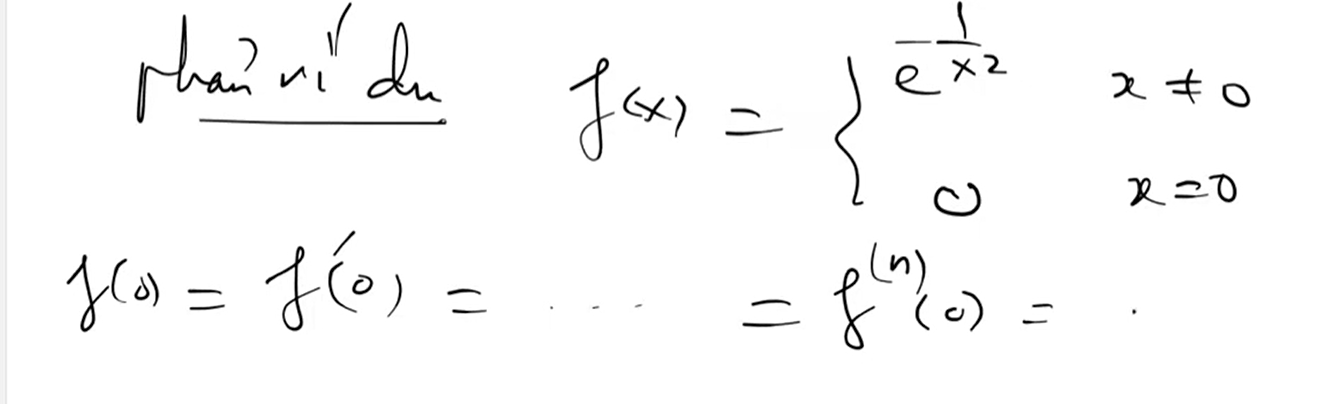 phản ví dụ f(x) = { e^{-1/x^2} x ≠ 0
0 x = 0
f(0) = f'(0) = .... = f^{(n)}(0) = .